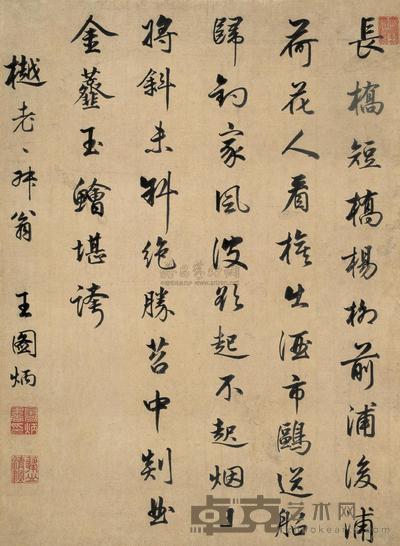 長橋短橋楊柳前浦後浦
荷花人看旗出酒市鷗送船
歸釣家風波欲起不起烟日
將斜未斜絕勝苕中剡曲
金虀玉鱠堪誇
樾老〻翁 王圖炳
卓克艺术网